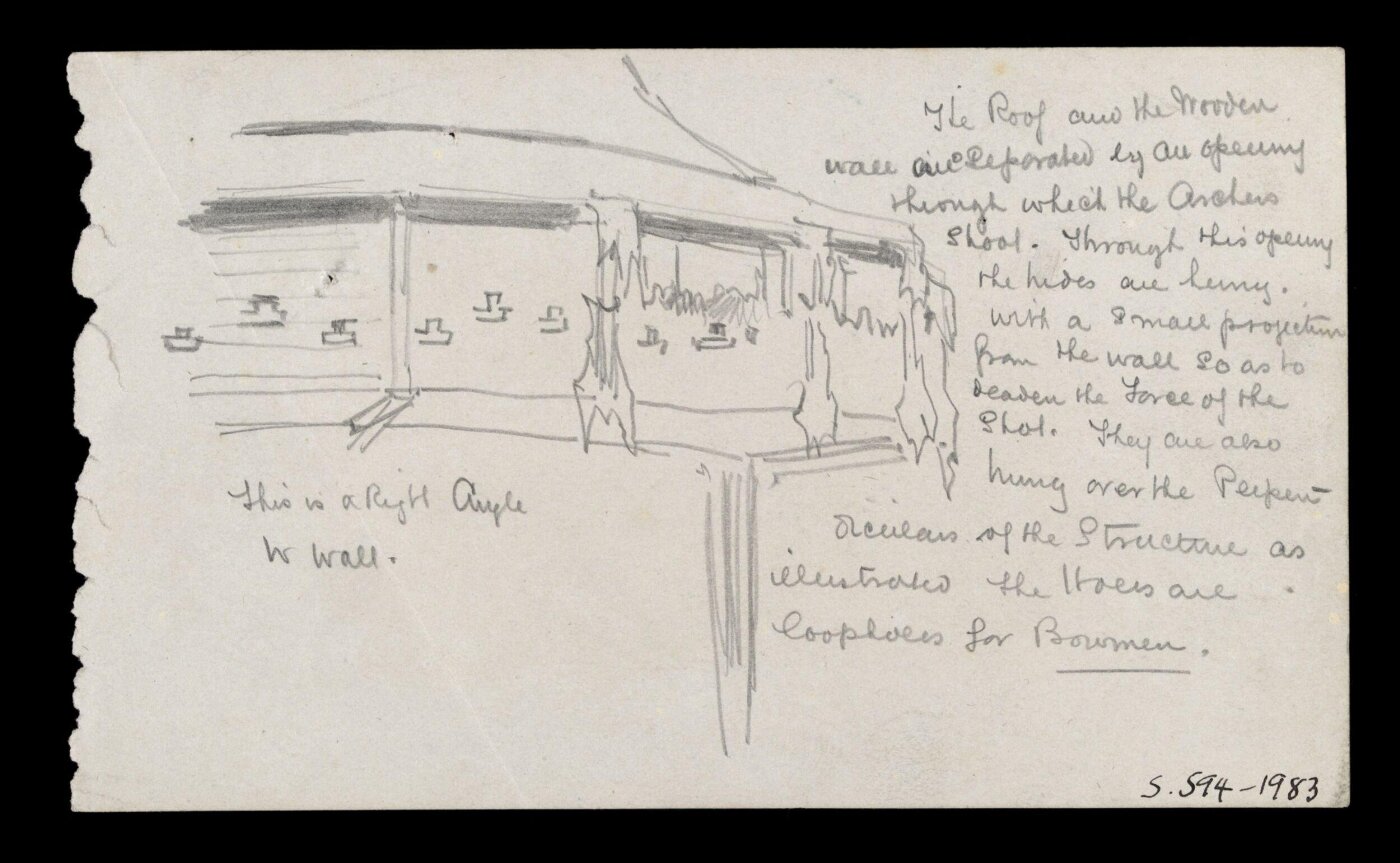 The Roof and the Wooden
wall are Seperated by an opening
through which the Archers
Shoot. Through this opening
the hides are hung.
with a Small projection
from the wall So as to
deaden the Force of the
Shot. They are also
hung over the Perpen-
diculars of the Structure as
illustrated The Holes are
loopholes for Bowmen.
This is a Right Angle
to wall.
S.594-1983